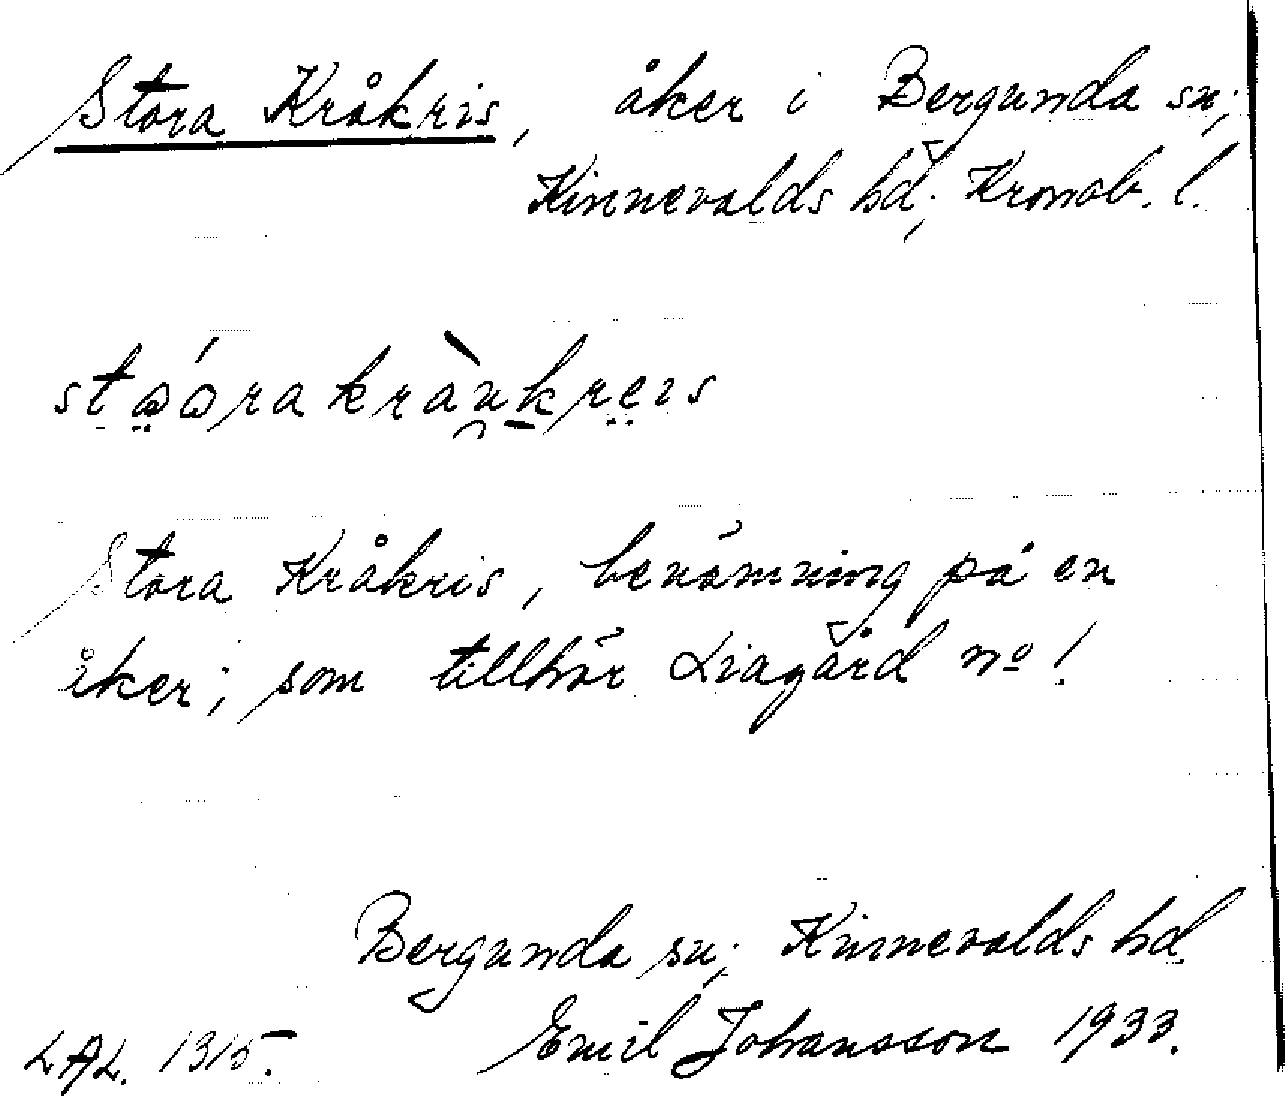 Stora Kråkris, åker i Bergunda sn;
Kinnevalds hd; Kronob. l.
Stora Kråkris, benämning på en
åker; som tillhör Liagård no 1
Bergunda sn; Kinnevalds hd.
Emil Johansson 1933.
LAL. 1315.